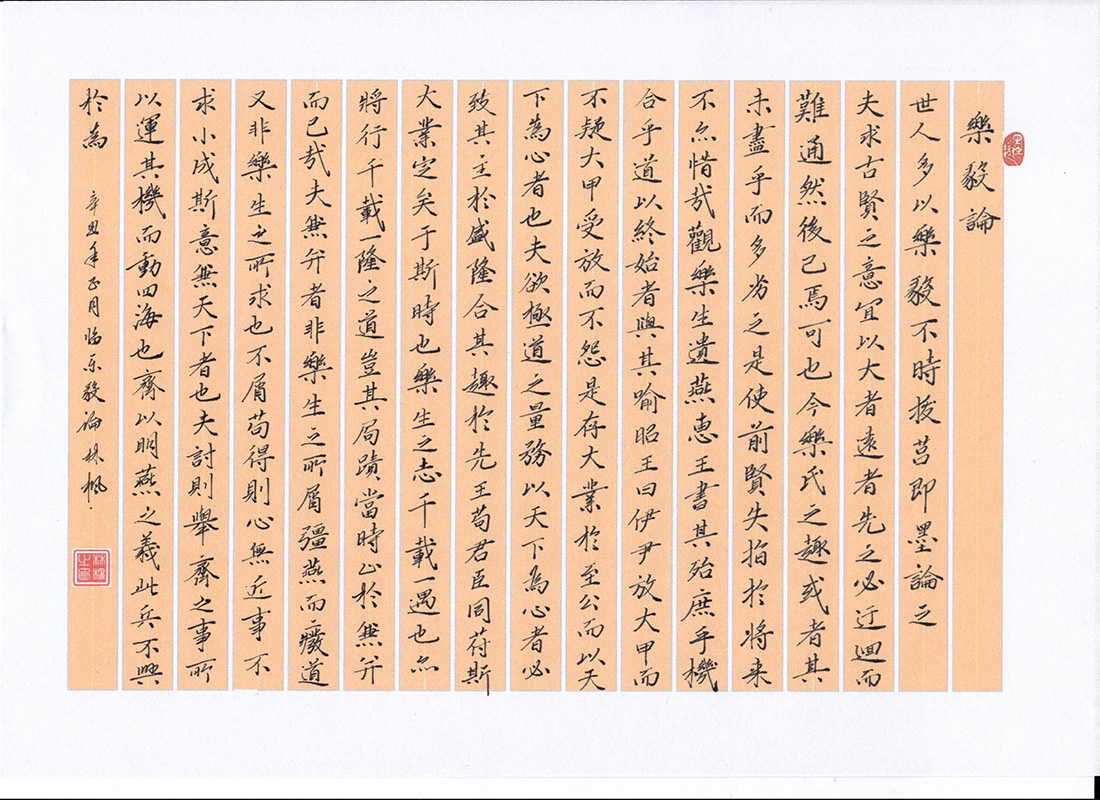 樂毅論
世人多以樂毅不時拔莒即墨論之
夫求古賢之意宜以大者遠者先之必迂迴而
難通然後已焉可也今樂氏之趣或者其
未盡乎而多劣之是使前賢失指於将来
不尒惜哉觀樂生遺燕惠王書其殆庶乎機
合乎道以終始者與其喻昭王曰伊尹放大甲而
不疑大甲受放而不怨是存大業於至公而以天
下為心者也夫欲極道之量務以天下為心者必
致其主於盛隆合其趣於先王苟君臣同苻斯
大業定矣于斯時也樂生之志千載一遇也尒
將行千載一隆之道豈其局蹟當時止於兼并
而已哉夫兼并者非樂生之所屑彊燕而癈道
又非樂生之所求也不屑苟得則心無近事不
求小成斯意無天下者也夫討則舉齊之事所
以運其機而動四海也齊以明燕之義此兵不興
於為 辛丑年正月临乐毅论林枫